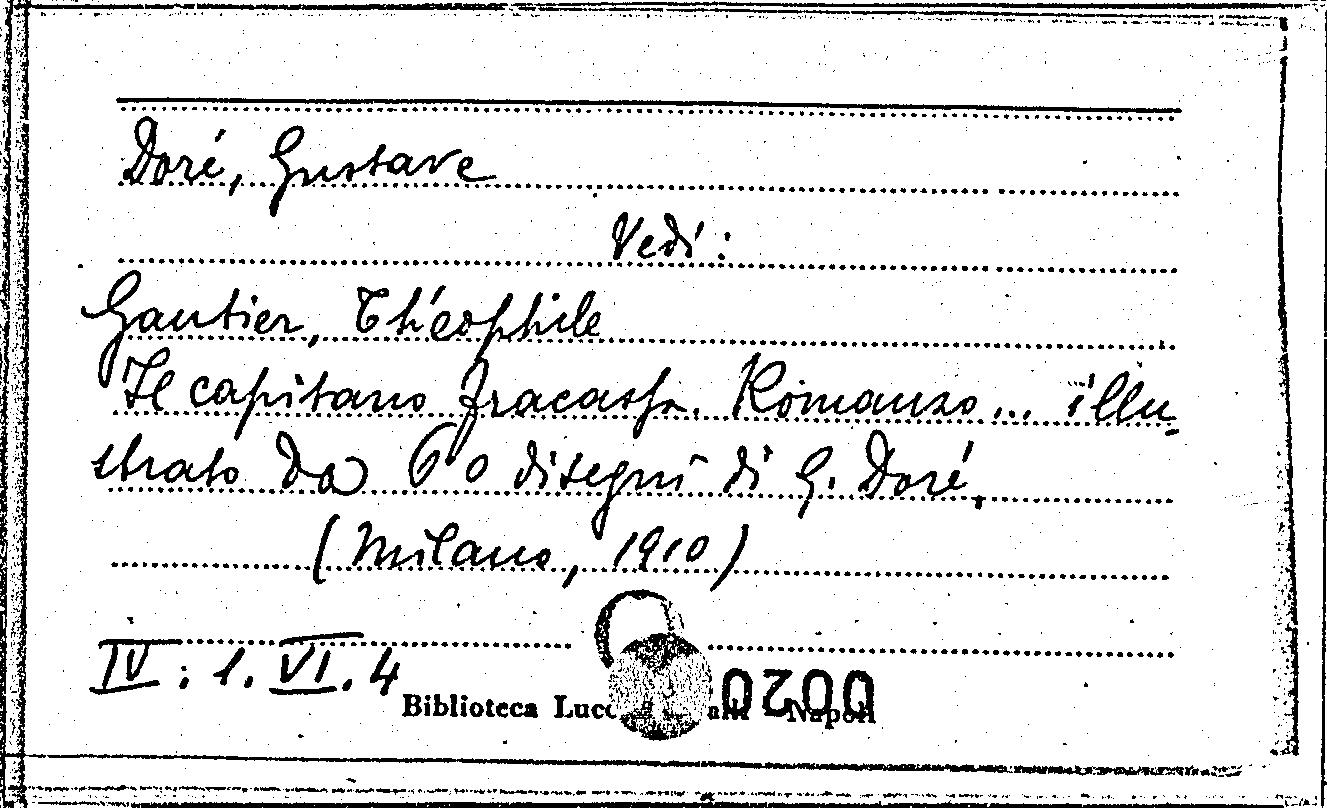 Doré, Gustave
Vedi:
Gautier, Théophile
Il capitano Fracassa. Romanzo... illu-
strato da 60 disegni di G. Doré.
(Milano, 1910)
IV : 1. VI. 4
Biblioteca Napoli
0200